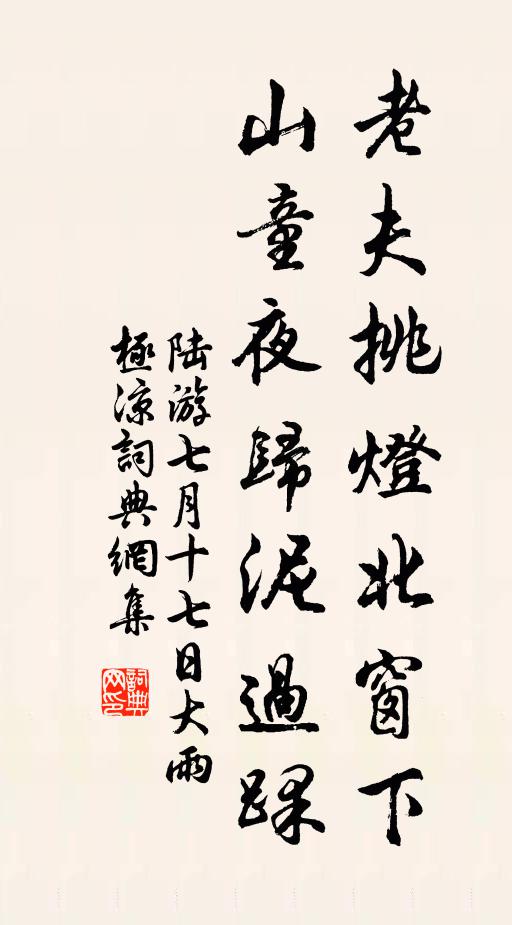 老夫挑燈北窗下
山童夜歸泥過踝
陆游七月十七日大雨
極凉詞典網集
詞典网印